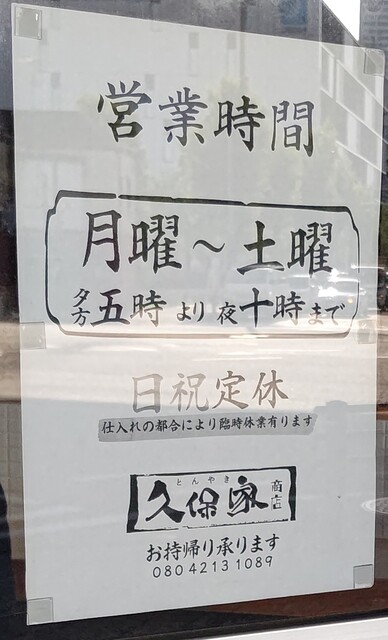 営業時間
月曜～土曜
夕方五時より夜十時まで
日祝定休
仕入れの都合により臨時休業有ります
とんやき
久保家商店
お持帰り承ります
080 4213 1089